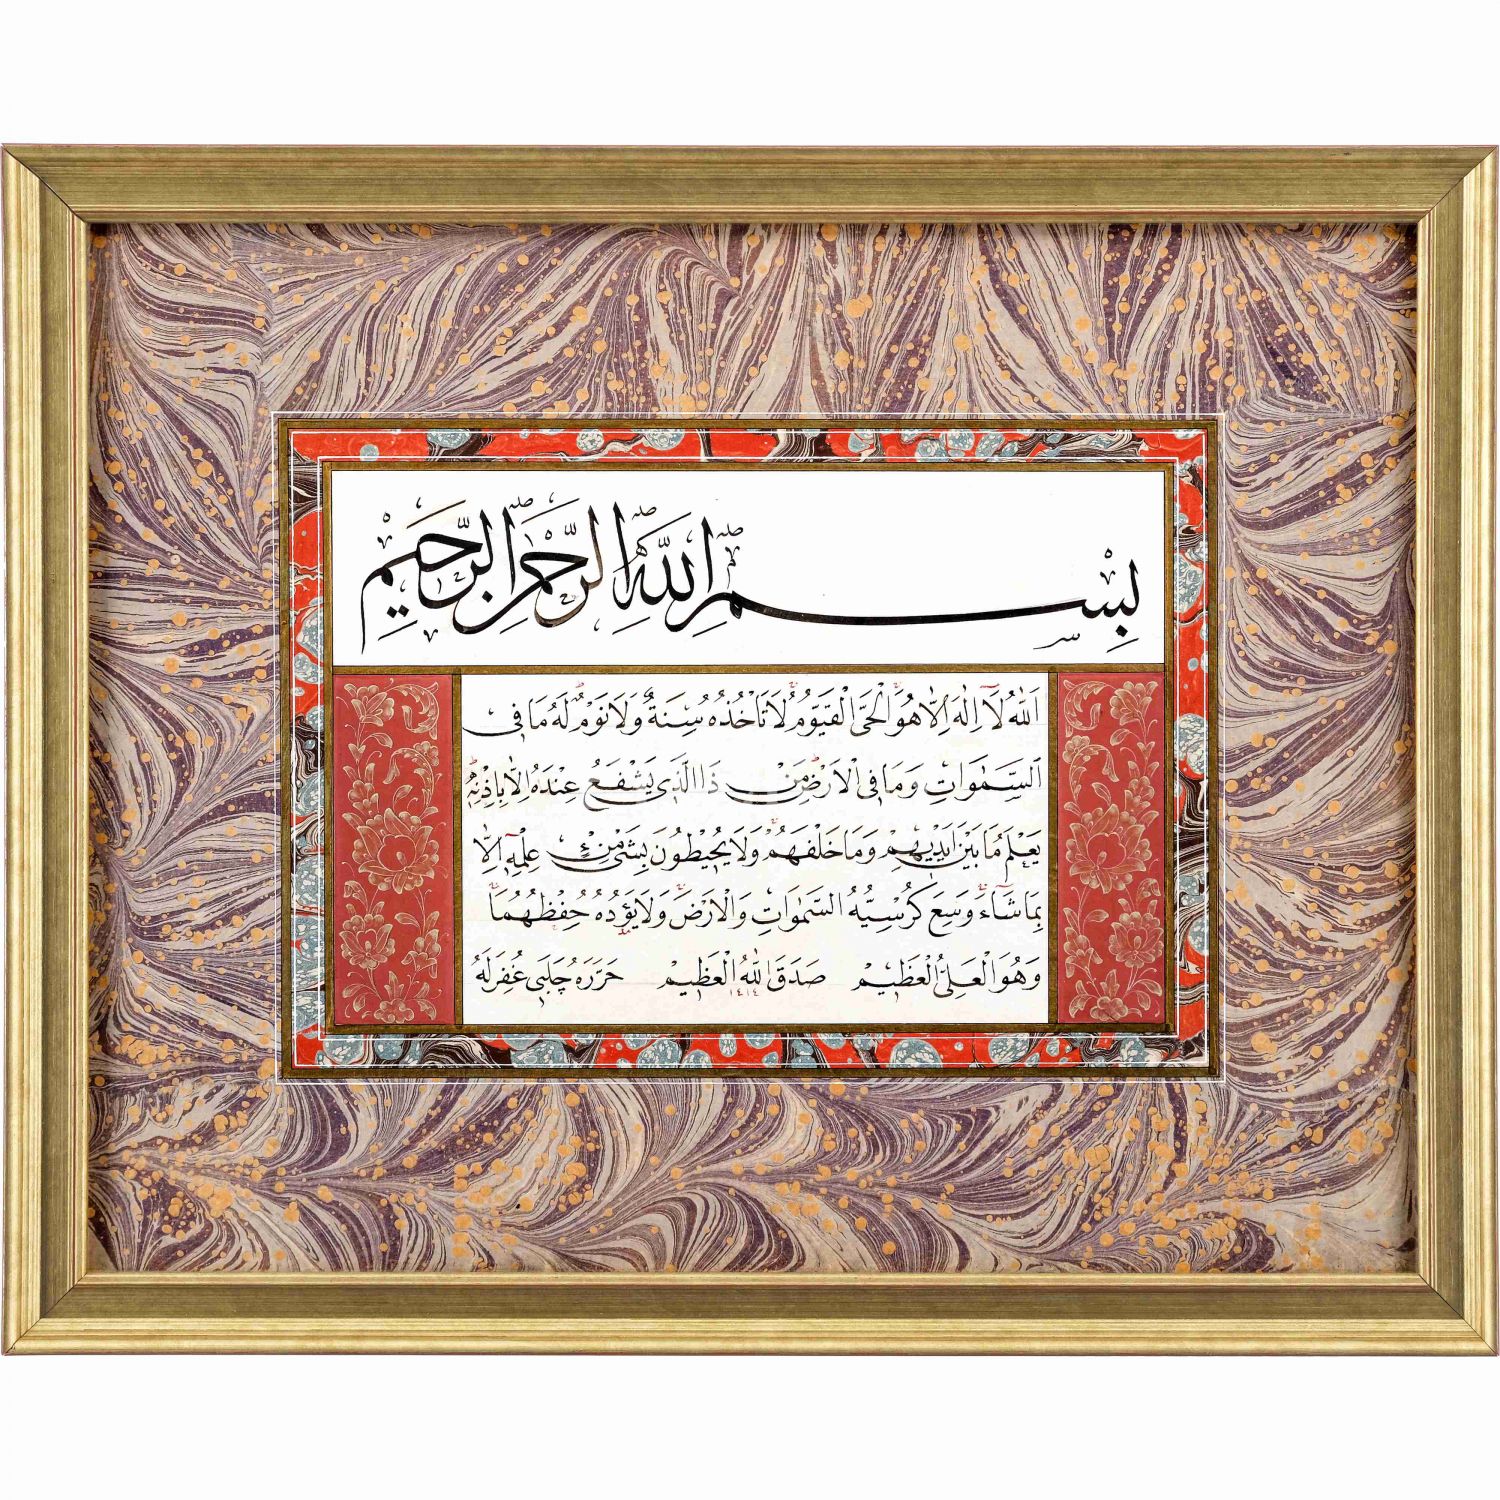 بِسْمِ اللّٰهِ الرَّحْمٰنِ الرَّحِيمِ
اَللّٰهُ لَا اِلٰهَ اِلَّا هُوَ الْحَىُّ الْقَيُّومُ لَا تَأْخُذُهُ سِنَةٌ وَلَا نَوْمٌ لَهُ مَا فِى
السَّمٰوَاتِ وَمَا فِى الْاَرْضِ مَنْ ذَا الَّذِى يَشْفَعُ عِنْدَهُ اِلَّا بِاِذْنِهِ
يَعْلَمُ مَا بَيْنَ اَيْدِيهِمْ وَمَا خَلْفَهُمْ وَلَا يُحِيطُونَ بِشَىْءٍ مِنْ عِلْمِهِ اِلَّا
بِمَا شَاءَ وَسِعَ كُرْسِيُّهُ السَّمٰوَاتِ وَالْاَرْضَ وَلَا يَؤُدُهُ حِفْظُهُمَا
وَهُوَ الْعَلِىُّ الْعَظِيمُ صَدَقَ اللّٰهُ الْعَظِيم حَرَّرَهُ چلبى غُفِرَ لَهُ
١٤١٤